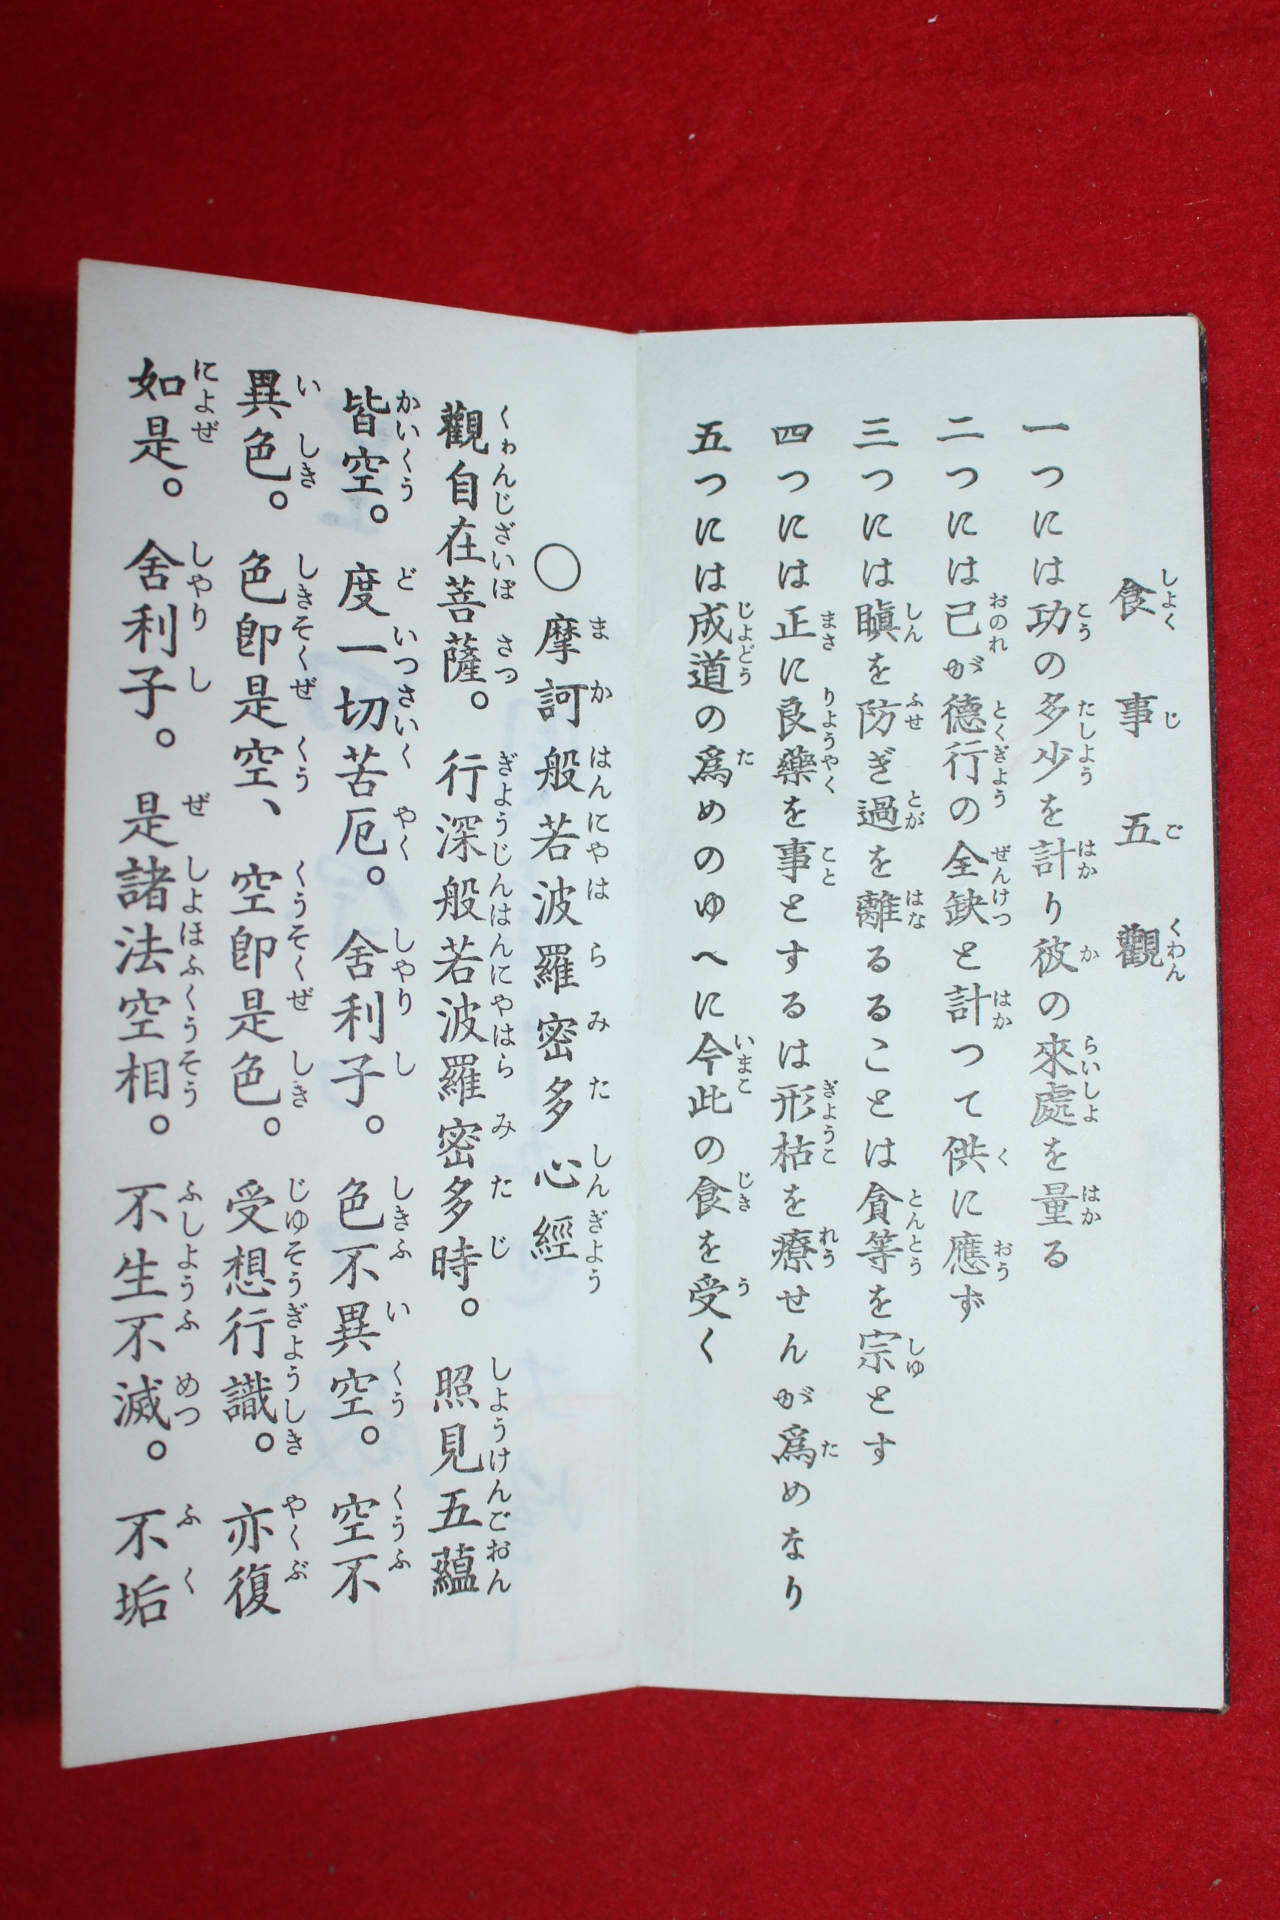 食事五觀
一つには功の多少を計り彼の來處を量る
二つには己が德行の全缺と計つて供に應ず
三つには瞋を防ぎ過を離るることは貪等を宗とす
四つには正に良藥を事とするは形枯を療せんが爲めなり
五つには成道の爲めのゆへに今此の食を受く
○摩訶般若波羅密多心經
觀自在菩薩。行深般若波羅密多時。照見五蘊
皆空。度一切苦厄。舍利子。色不異空。空不
異色。色卽是空、空卽是色。受想行識。亦復
如是。舍利子。是諸法空相。不生不滅。不垢